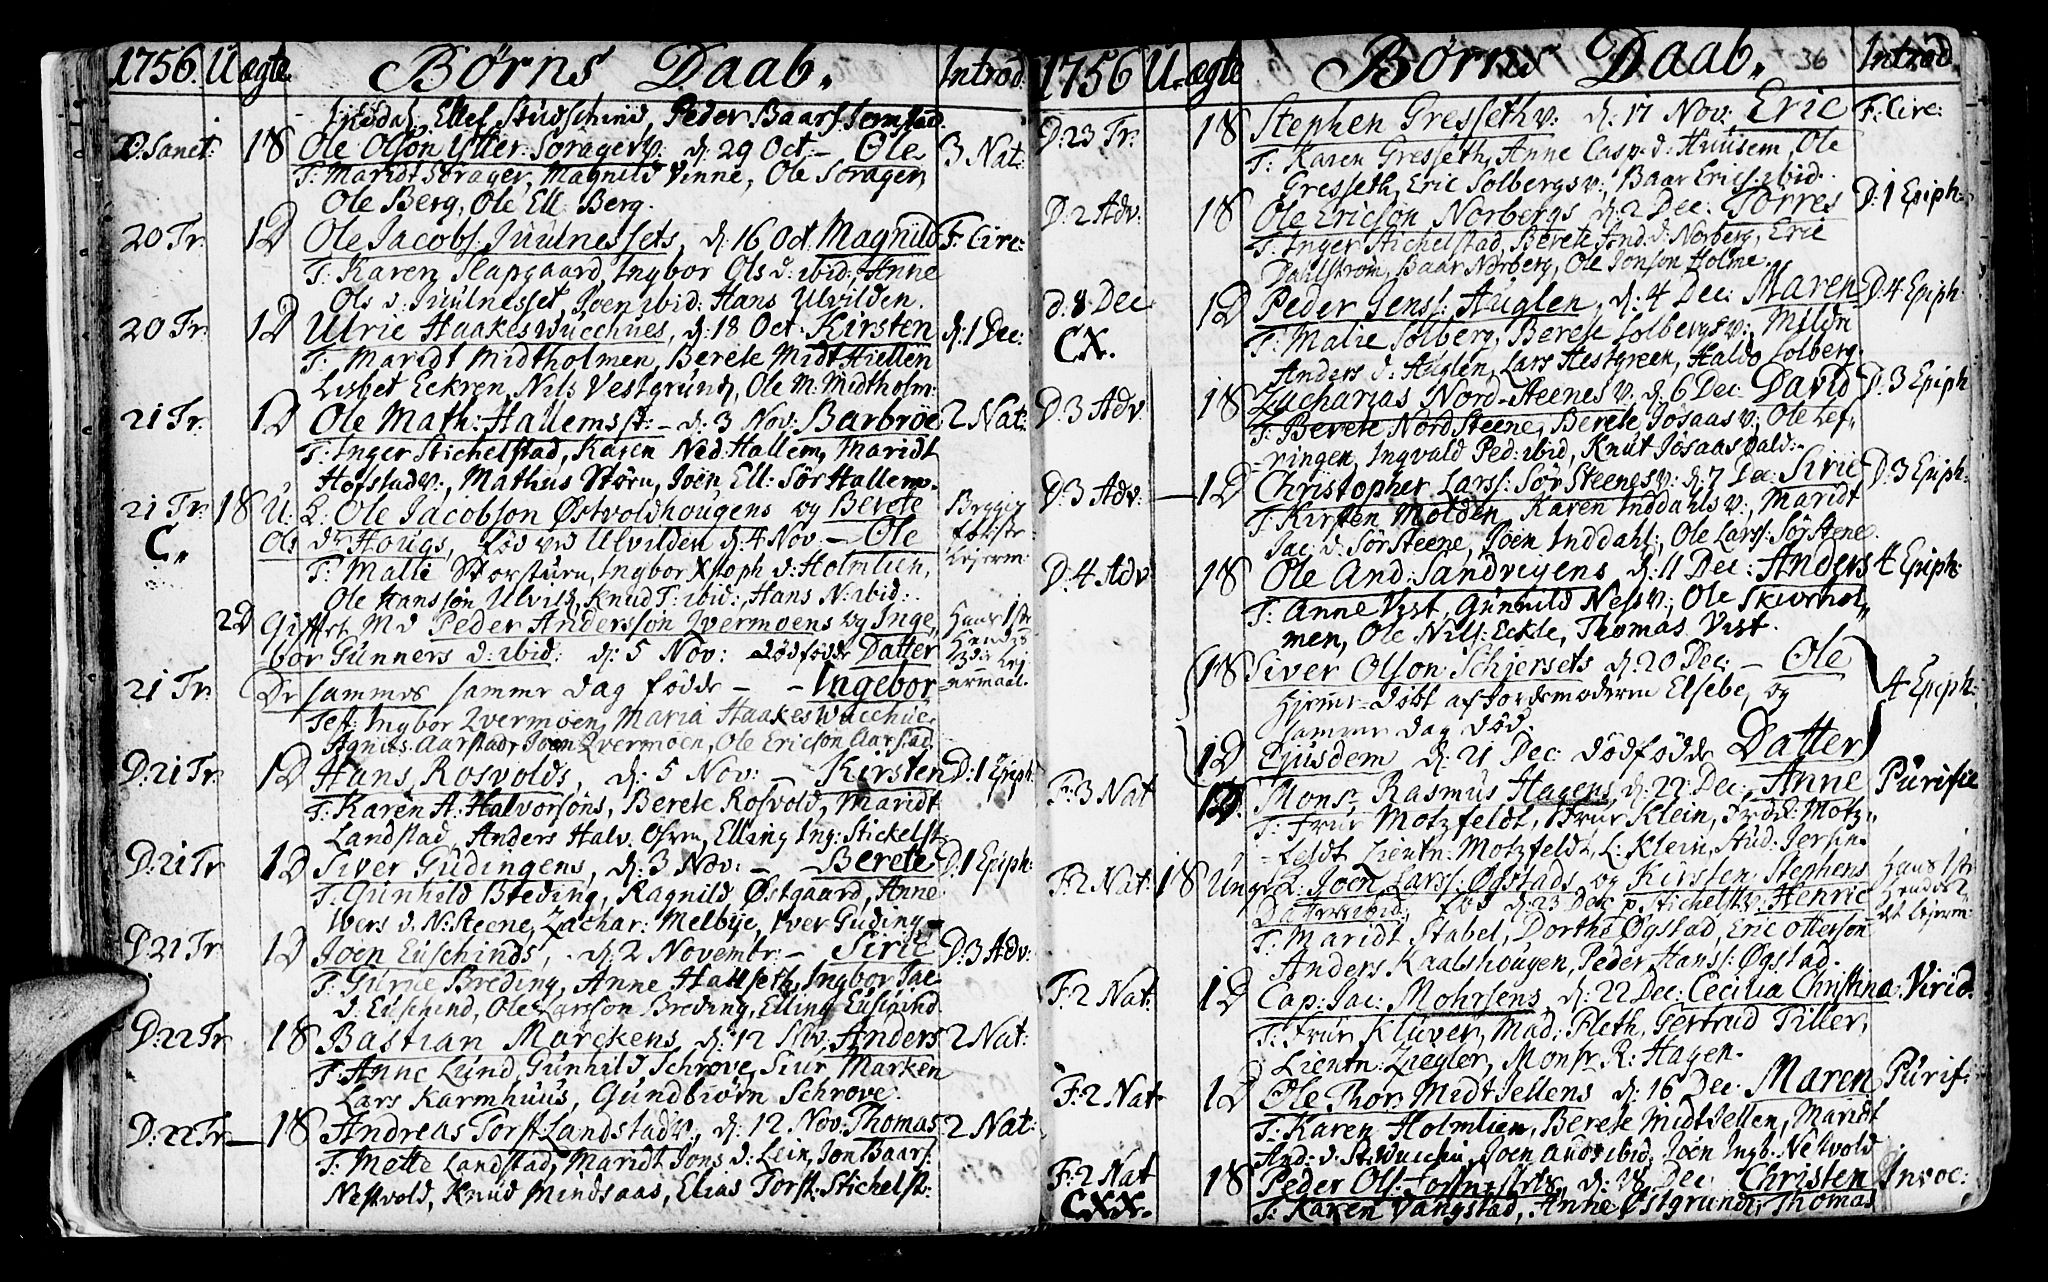 1756. Uægte. Børns Daab. Introd.
Ellef Studschind, Peder Baars Semstad.
D. Sanct: 18 Ole Olson Ytter-Sorager v: d: 29 Oct: – Ole 3 Nat:
T: Maridt Strager, Magnild Vinne, Ole Sorager,
Ole Berg, Ole Ell: Berg.
20 Tr. 1D Ole Jacobs: Juulnessets, d: 16 Oct. Magnild F. Circ:
T: Karen Slapgaard, Ingbor Ols d: ibid:, Anne
Ols d: Juulnesset, Joen ibid: Hans Ulvilden.
20 Tr. 1D Ulric Haakes Wucchues, d: 18 Oct: Kirsten d: 1 Dec:
T: Maridt Midtholmen, Berete Midt Hiellen
Lisbet Eckren, Nils Vestgrund, Ole M: Midtholm:
21 Tr. 1D Ole Math: Hallems st: – d: 3 Nov: Barbroe 2 Nat:
T: Inger Stichelstad, Karen Ned Hallem, Maridt
Hofstad v:, Mathus Störu, Joen Ell: Sör Hallem.
21 Tr: 18 U: L: Ole Jacobson Østvoldhougens og Berete
C. Ols dr Hougs, fød ved Ulvilden d: 4 Nov: – Ole
T: Malie Storsturu, Ingbor Xstoph: d: Holmlien,
Ole Hanssön Ulvild, Knud T: ibid:, Hans N: ibid:
2D Giftet Md Peder Andersson Qvermoens og Inge„
bor Gunners d: ibid: d: 5 Nov: dödfødde Datter
21 Tr. De sammes samme dag fødde – – Ingebor
Test: Ingbor Qvermoen, Maria Haakes Wucchue,
Agnits Aarstad, Joen Qvermoen, Ole Ericson Aarstad.
D: 21 Tr. 1D Hans Rosvolds, d: 5 Nov: – Kirsten D: 1 Epiph:
T: Karen A: Halvorsöns, Berete Rosvold, Maridt
Landstad, Anders Halv: Osen, Elling Ing: Stickelst
D: 21 Tr 1D Siver Gudingens, d: 3 Nov: – Berete D: 1 Epiph:
T: Gunhild Breding, Ragnild Østgaard, Anne
Ivers d: N: Steene, Zachar: Melbye, Iver Guding
D: 21 Tr. 1D Joen Euschinds, d: 2 Novembr: – Siric D: 3 Adv:
T: Gurne Breding, Anne Hallseth, Ingbor Jac
d: Euschind, Ole Larsson Breding, Elling Euschind
D: 22 Tr 18 Bastian Marckens, d: 12 Nov, Anders 2 Nat:
T: Anne Lund, Gunhild Schrove, Siur Marken
Lars Karmhuus, Gundbiörn Schrove.
D: 22 Tr – 18 Andreas Torst: Landstad v:, d: 12 Nov: Thomas 2 Nat:
T: Mette Landstad, Maridt Jons d: Lein, Jon Baars:
Nestvold, Knud Mindsaas, Elias Torst: Stichelst:
1756 U-ægte Børns Daab. 36 Introd.
D: 23 Tr. 18 Stephen Gresseth v: d: 17 Nov: Eric F: Circ:
T: Karen Gresseth, Anne Casp: d: Huusem, Ole
Gresseth, Eric Solbergs v:, Baar Erics: ibid.
D: 2 Adv. 18 Ole Ericson Norbergs d: 2 Dec: Torres D: 1 Epiph:
T: Inger Stichelstad, Berete And: d: Norberg, Eric
Dahlstrøm, Baar Norberg, Ole Jonson Holme.
d: 8 Dec 1D Peder Jens: Auglen, d: 4 Dec: Maren D: 4 Epiph:
CX. T: Malie Solberg, Berete Solbergs v:, Mildr
Anders d: Auglen, Lars Hestgreen, Haldo Solberg.
D: 3 Adv 18 Zacharias Nord-Steenes v: d: 6 Dec: David D: 3 Epiph
T: Berete Nord Steene, Berete Josaas v:, Ole Lef„
ringen, Ingvald Ped: ibid, Knut Josaas Dald:
D: 3 Adv: – 1D Christopher Larss: Sör Steenes v: d: 7 Dec: Siric D: 3 Epiph:
T: Kirsten Molden, Karen Inddahls v:, Maridt
Jac: d: Sör Steene, Joen Inddahl:, Ole Larss: Sörstene.
D: 4 Adv 18 Ole And: Sandvigens d: 11 Dec: Anders 4 Epiph:
T: Anne Vist, Gunhild Ness v:, Ole Skierhol„
men, Ole Nils: Eckle, Thomas Vist.
18 Siver Olson Schjersets d: 20 Dec: – Ole 4 Epiph:
Hjemme-döbt af Jordemoderen Elsebe, og
samme dag död.
1D Ejusdem d: 21 Dec: dödfödde Datter
F: 3 Nat 1D. Monsr Rasmus Hagens, d: 22 Dec: Anne Purific
T: Frur Motzfeldt, Frur Klein, Frdk: Motz„
feldt Lieutn: Motzfeldt, L: Klein, Stud: Jersin.
F: 2 Nat: 18 Ung: L: Joen Larss: Øgstads og Kirsten Stephens
Datter ibid: fød d: 23 Dec: p Stichelst v: Henric
T: Maridt Stabel, Dorthe Øgstad, Eric Otterson
Anders Kaalshougen, Peder Hans: Øgstad.
F: 2 Nat: 1D Cap: Jac: Mohrsens, d: 22 Dec: Cecilia Christina Virid.
T: Frur Kluver, Mad: Pleth, Gertrud Tiller,
Lieutn: Ziegler, Monsr R: Hagen.
F: 2 Nat 1D Ole Thors Midt Jellens d: 16 Dec: Maren Purif:
T: Karen Holmlien, Berete Midt Jellen, Maridt
And: d: St: Wucchu, Joen Auds ibid, Joen Ingb: Nestvold
F: 2 Nat 18 Peder Ols: d: 18 Dec: Christen Invoc:
CXX. T: Karen Vangstad, Anne Østgrund, Thomas